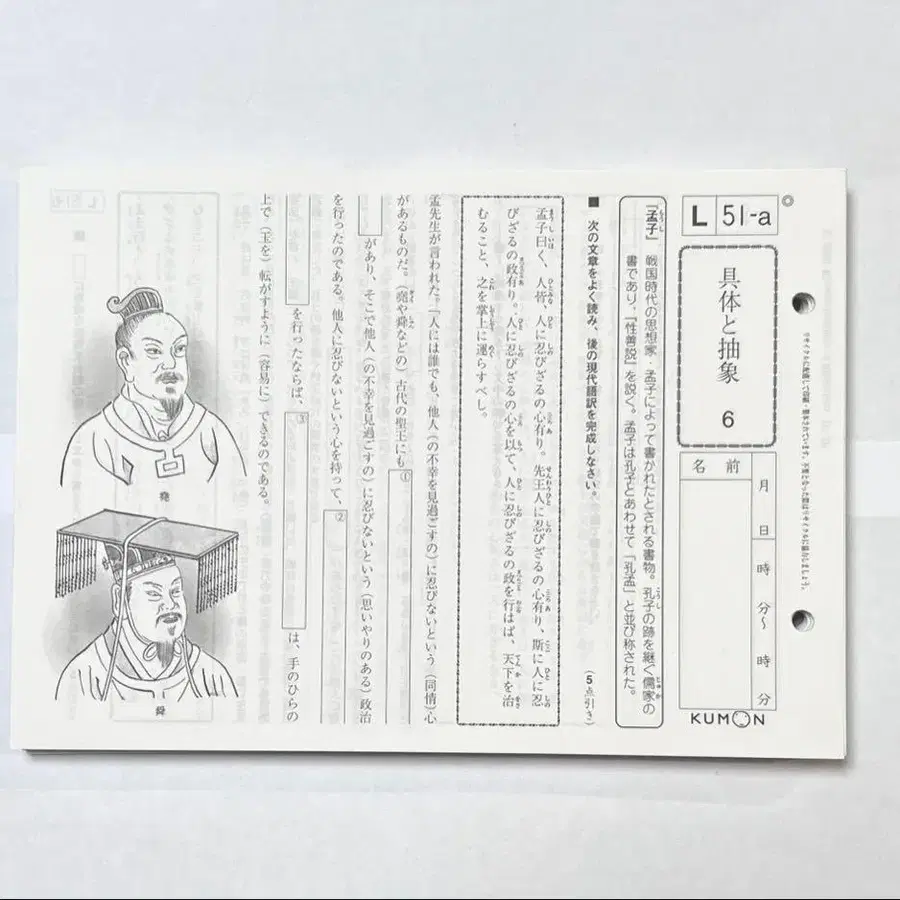 L 51-a
具体と抽象 6
名前
月 日 時 分〜 時 分
KUMON
『孟子』 戦国時代の思想家・孟子によって書かれたとされる書物。孔子の跡を継ぐ儒家の
書であり、『性善説』を説く。孟子は孔子とあわせて「孔孟」と並び称された。
■ 次の文章をよく読み、後の現代語訳を完成しなさい。 (5点引き)
孟子曰く、人皆、人に忍びざるの心有り。先王人に忍びざるの心有り、斯に人に忍
びざるの政有り。人に忍びざるの心を以て、人に忍びざるの政を行はば、天下を治
むること、之を掌上に運らすべし。
孟先生が言われた。「人には誰でも、他人(の不幸を見過ごすの)に忍びないという(同情)心
があるものだ。(堯や舜などの)古代の聖王にも①
があり、そこで他人(の不幸を見過ごすの)に忍びないという(思いやりのある)政治
を行ったのである。他人に忍びないという心を持って、②
を行ったならば、③ は、手のひらの
上で(玉を)転がすように(容易に)できるのである。
堯
舜